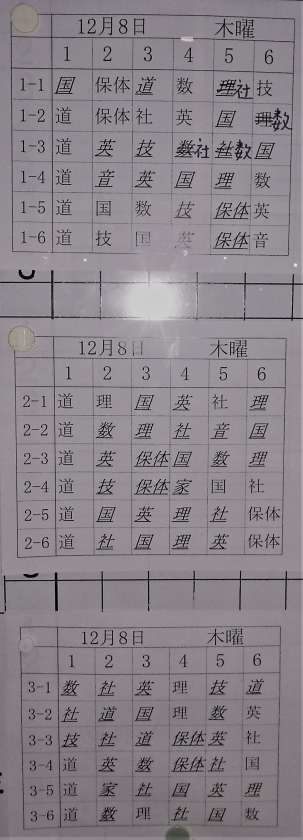 12月8日 木曜
1 2 3 4 5 6
1-1 国 保体 道 数 理社 技
1-2 道 保体 社 英 国 理数
1-3 道 英 技 数社 社数 国
1-4 道 音 英 国 理 数
1-5 道 国 数 技 保体 英
1-6 道 技 国 英 保体 音
12月8日 木曜
1 2 3 4 5 6
2-1 道 理 国 英 社 理
2-2 道 数 理 社 音 国
2-3 道 英 保体 国 数 理
2-4 道 技 保体 家 国 社
2-5 道 国 英 理 社 保体
2-6 道 社 国 理 英 保体
12月8日 木曜
1 2 3 4 5 6
3-1 数 社 英 理 技 道
3-2 社 道 国 理 数 英
3-3 技 社 道 保体 英 社
3-4 道 英 数 保体 社 国
3-5 道 家 社 国 英 理
3-6 道 数 理 社 国 数